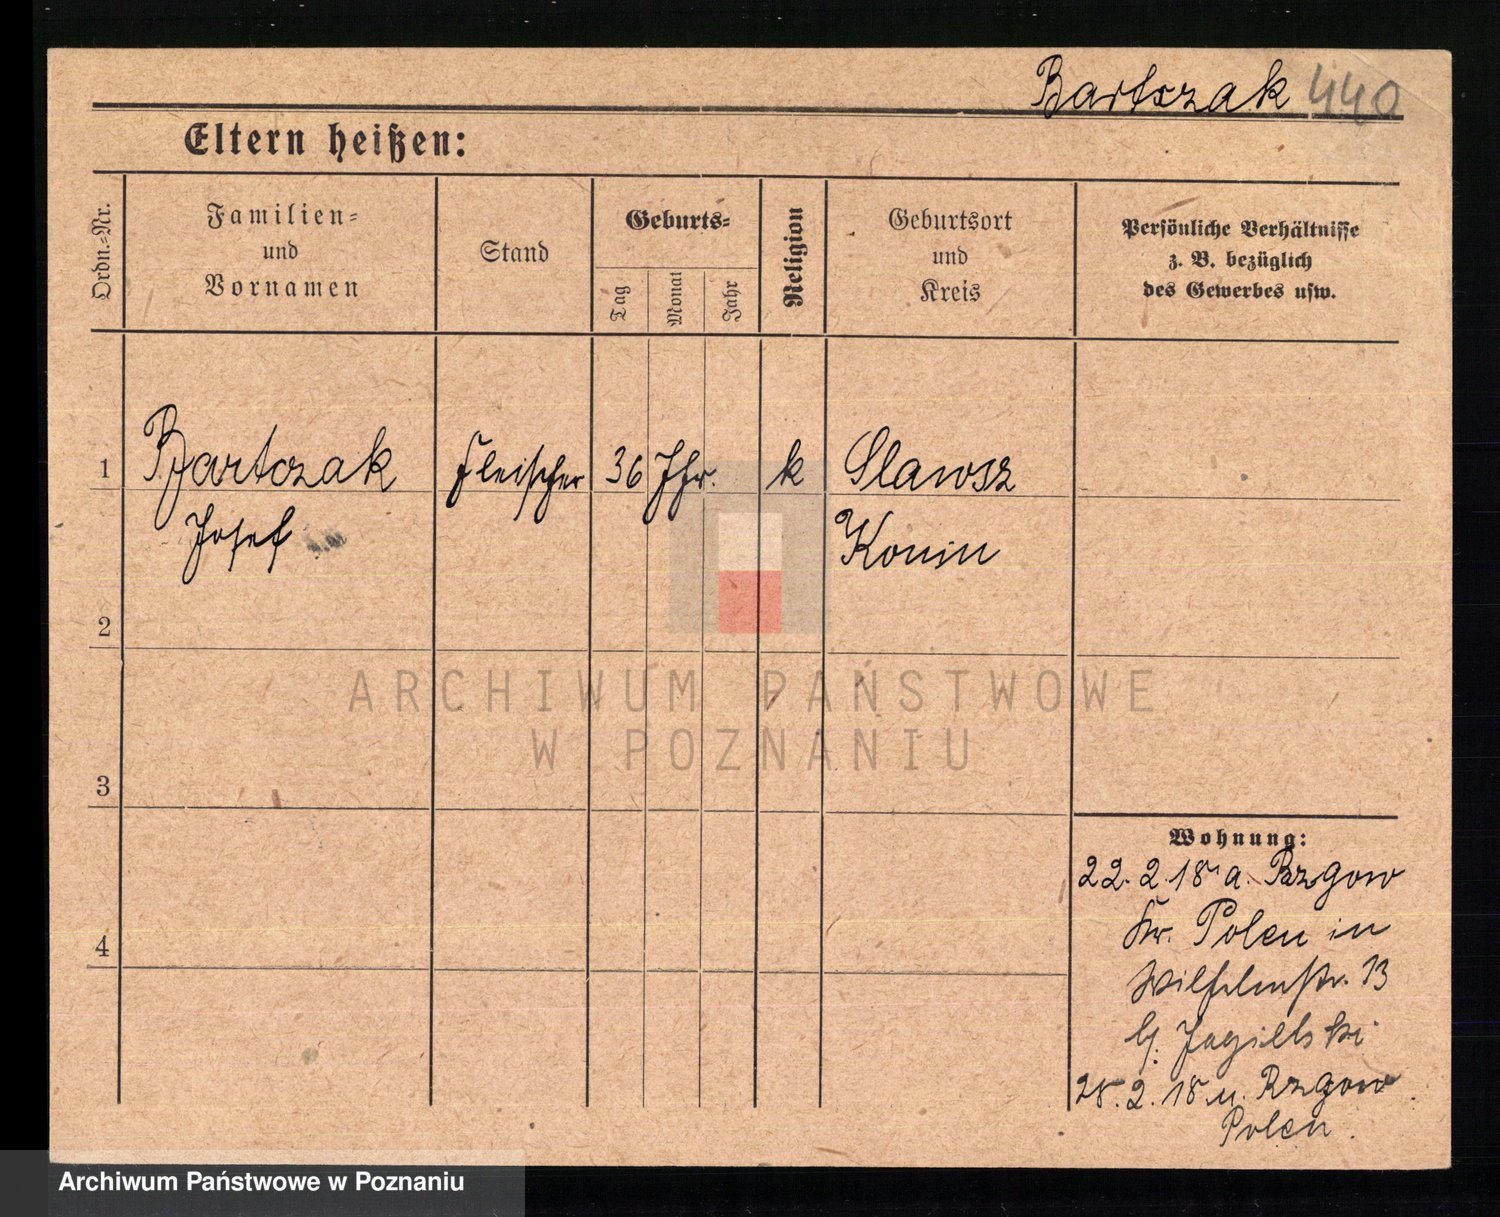 Bartczak 440
Eltern heißen:
Ordn.=Nr.
Familien=
und
Vornamen
Stand
Geburts=
Tag
Monat
Jahr
Religion
Geburtsort
und
Kreis
Persönliche Verhältnisse
z. B. bezüglich
des Gewerbes usw.
1
Bartczak
Josef
Fleischer
36 Jhr.
k
Slawsz
Konin
2
3
4
Wohnung:
22. 2. 18 a. Rzgow
Kr. Polen in
Wilhelmstr. 13
b. Jagielski
28. 2. 18 n. Rzgow
Polen.
ARCHIWUM PAŃSTWOWE
W POZNANIU
Archiwum Państwowe w Poznaniu